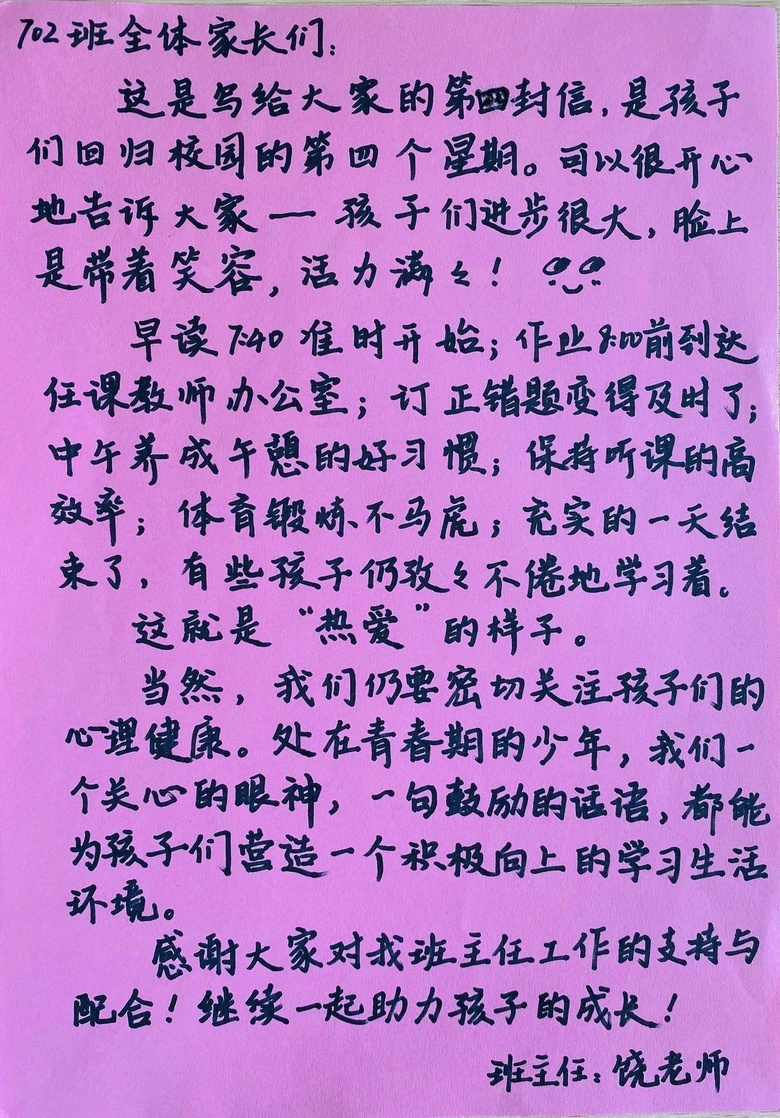 702班全体家长们：
这是写给大家的第四封信，是孩子
们回归校园的第四个星期。可以很开心
地告诉大家一 孩子们进步很大，脸上
是带着笑容，活力满々！
早读7:40准时开始；作业8:00前到达
任课教师办公室；订正错题变得及时了；
中午养成午憩的好习惯；保持听课的高
效率；体育锻炼不马虎；充实的一天结
束了，有些孩子仍孜々不倦地学习着。
这就是“热爱”的样子。
当然，我们仍要密切关注孩子们的
心理健康。处在青春期的少年，我们一
个关心的眼神，一句鼓励的话语，都能
为孩子们营造一个积极向上的学习生活
环境。
感谢大家对我班主任工作的支持与
配合！继续一起助力孩子的成长！
班主任：饶老师